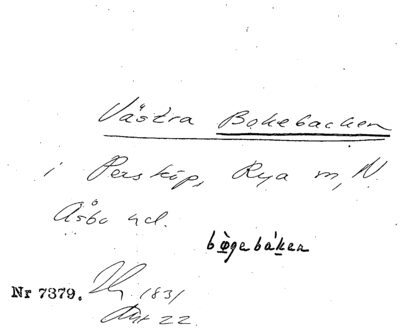 Västra Bokebacken
i Persköp, Rya m, N.
Åsbo hd.
bògebáken
Nr 7379.
1831
Akt 22.